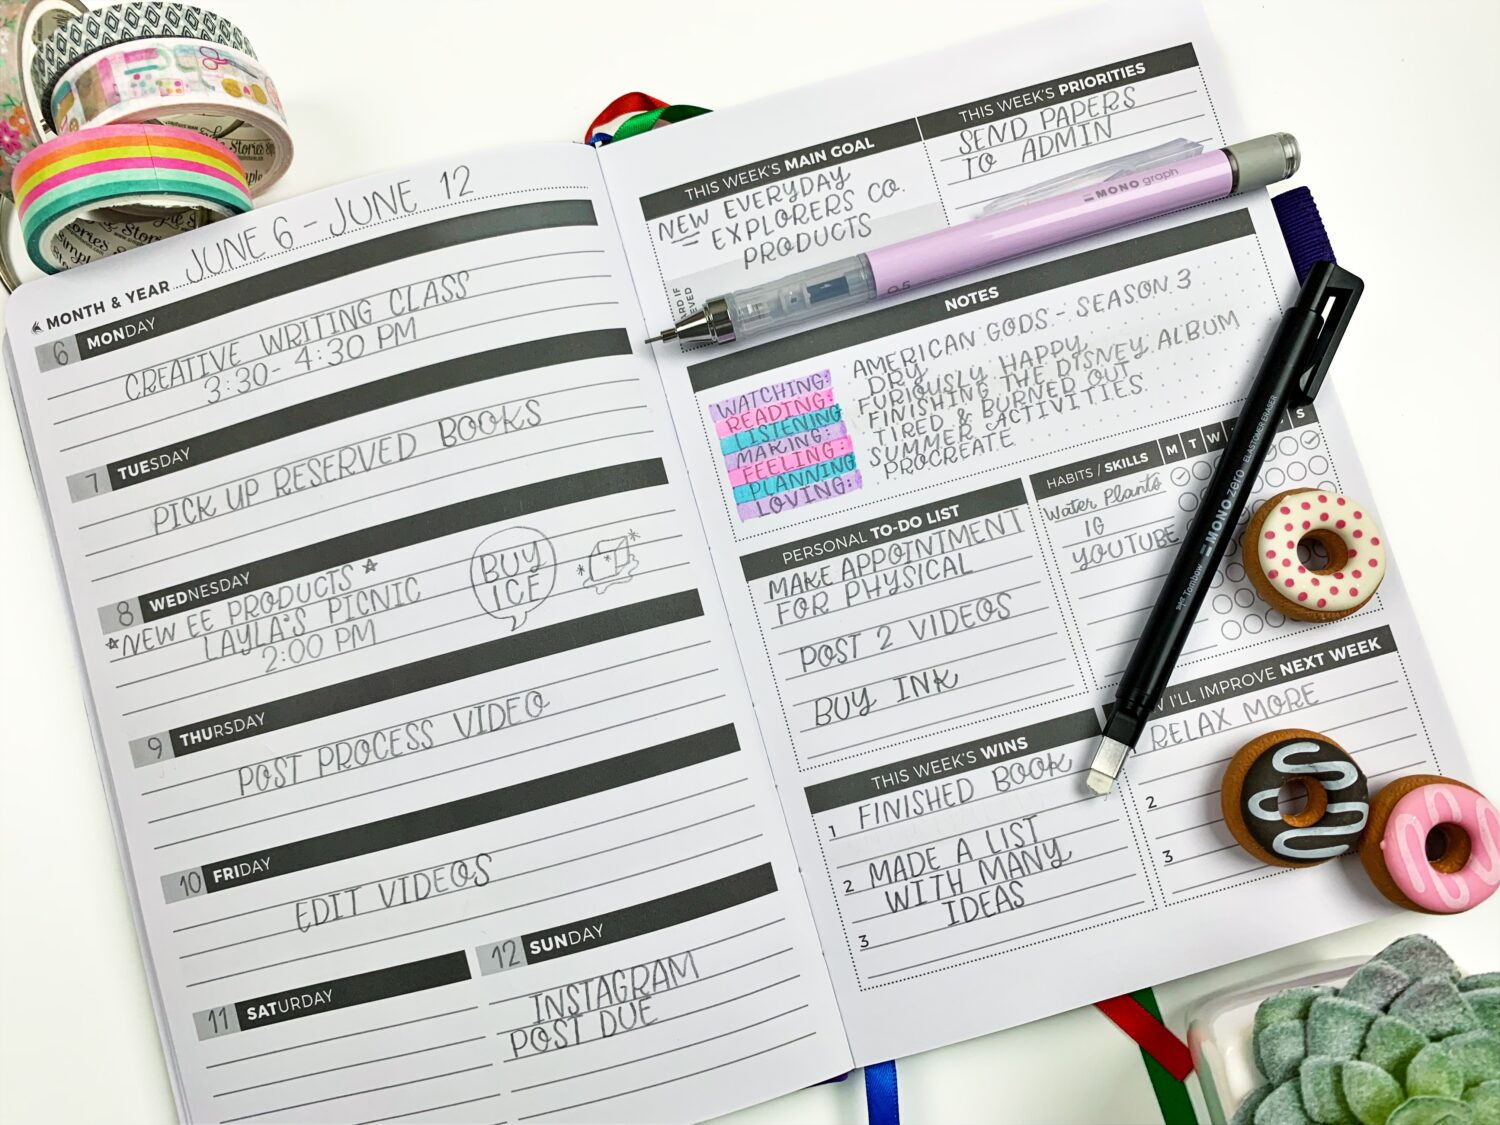 MONTH & YEAR JUNE 6 - JUNE 12
6 MONDAY
CREATIVE WRITING CLASS
3:30 - 4:30 PM
7 TUESDAY
PICK UP RESERVED BOOKS
8 WEDNESDAY
NEW EE PRODUCTS
LAYLA'S PICNIC
2:00 PM
BUY
ICE
9 THURSDAY
POST PROCESS VIDEO
10 FRIDAY
EDIT VIDEOS
11 SATURDAY
12 SUNDAY
INSTAGRAM
POST DUE
THIS WEEK'S MAIN GOAL
NEW EVERYDAY
EXPLORERS CO.
PRODUCTS
THIS WEEK'S PRIORITIES
SEND PAPERS
TO ADMIN
NOTES
WATCHING: AMERICAN GODS - SEASON 3
READING: DRY
LISTENING FURIOUSLY HAPPY
MAKING: FINISHING THE DISNEY ALBUM
FEELING: TIRED & BURNED OUT
PLANNING SUMMER ACTIVITIES
LOVING: PROCREATE
PERSONAL TO-DO LIST
MAKE APPOINTMENT
FOR PHYSICAL
POST 2 VIDEOS
BUY INK
HABITS / SKILLS M T W S
Water Plants
IG
YOUTUBE
THIS WEEK'S WINS
1 FINISHED BOOK
2 MADE A LIST
WITH MANY
IDEAS
3
I'LL IMPROVE NEXT WEEK
RELAX MORE
2
3
MONO graph
0.5
Tombow MONO zero ELASTOMER ERASER
Stories
Simple